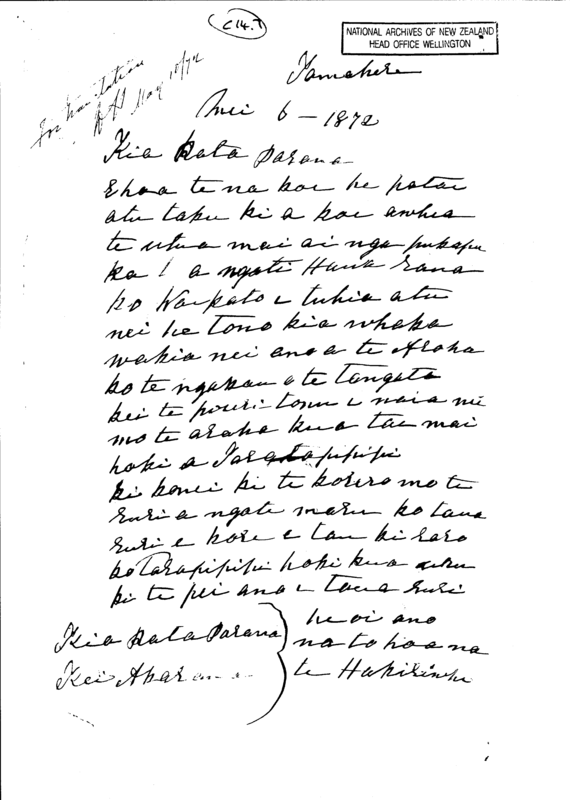 C 14.7
NATIONAL ARCHIVES OF NEW ZEALAND
HEAD OFFICE WELLINGTON
for translation
May 10/72
Tamahere
Mei 6 - 1872
Kia Kata Parana
Ehoa te na koe he patai
atu taku ki a koe awhea
te utua mai ai nga pukapu
ka a ngati Haua raua
ko Waikato e tuhia atu
nei he tono kia whaka
wakia nei ano a te Aroha
ko te ngakau o te tangata
kei te pouri tonu i naia nei
mo te aroha kua tae mai
hoki a Tarapipipi
ki konei ki te korero mo te
ruri a ngati maru ko taua
ruri e kore e tau ki raro
ko Tarapipipi hoki kua uru
ki te pei ano i taua ruri
heoi ano
na to hoa na
te Hakiriwhi
Kia Kata Parana
Kei Akarana